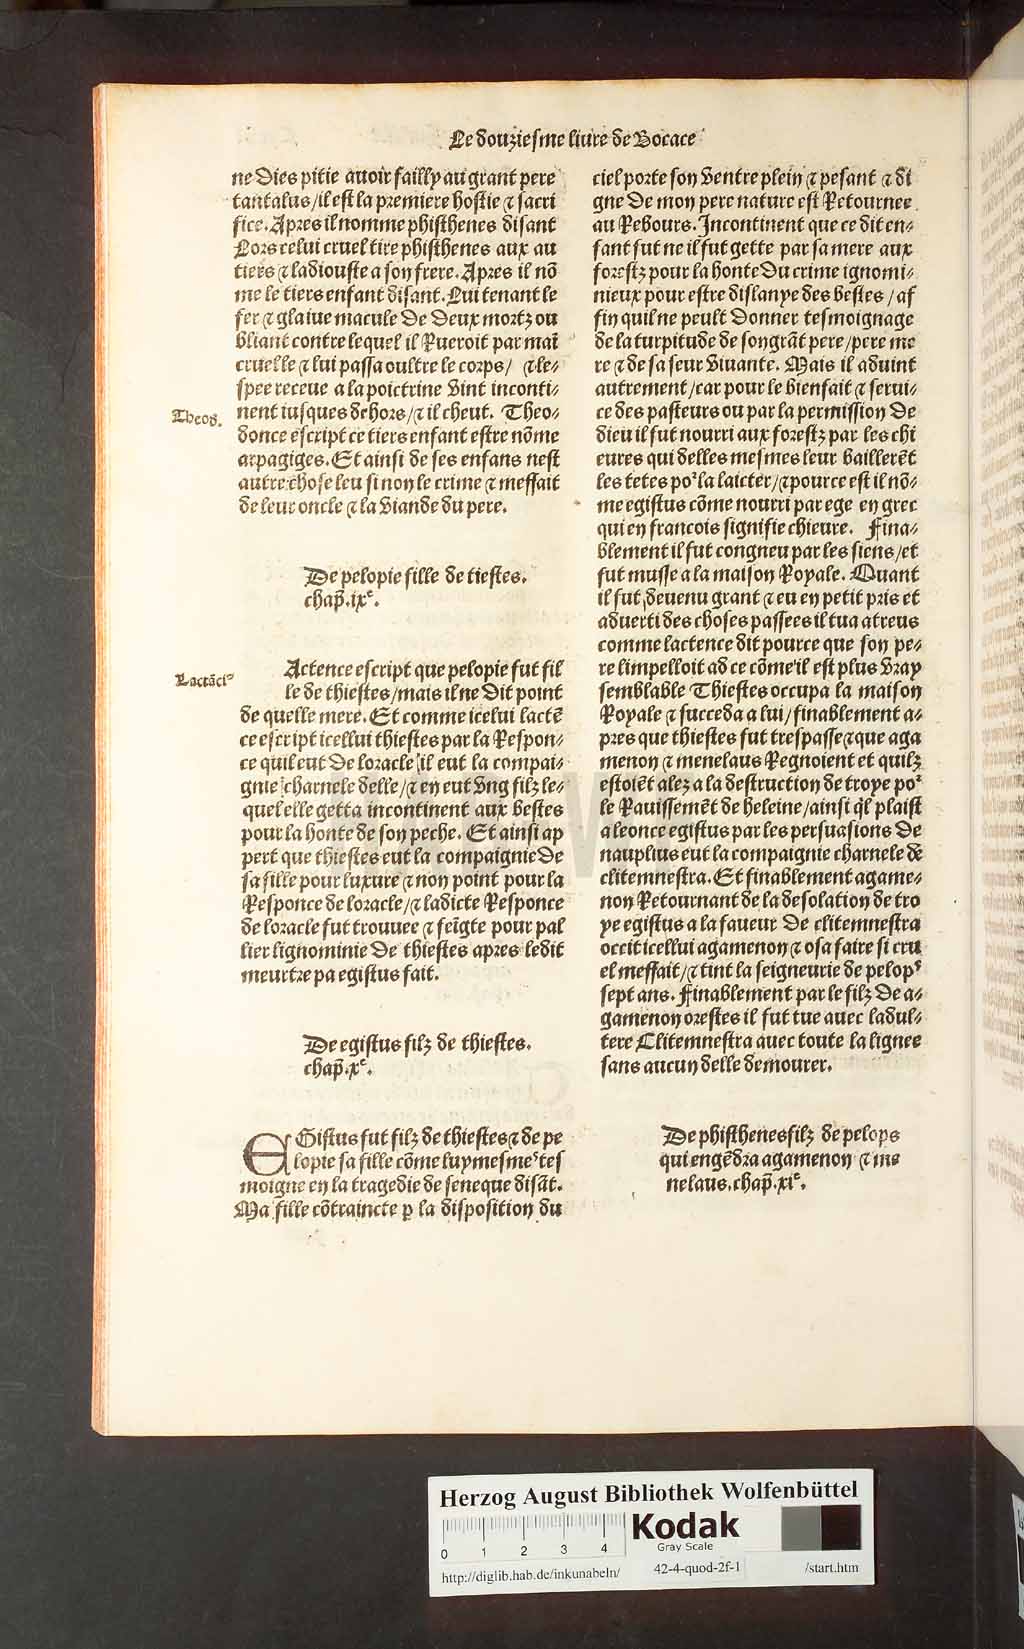 Le douziesme liure de Bocace
ne dies pitie auoir failly au grant pere
tantalus/il est la premiere hostie ⁊ sacri
fice. Apres il nomme phisthenes disant
Lors celui cruel tire phisthenes aux au
tiers ⁊ ladiouste a son frere. Apres il nō
me le tiers enfant disant. Lui tenant le
fer ⁊ glaiue macule de deux mortz ou
bliant contre lequel il Rueroit par mai
cruelle ⁊ lui passa oultre le corps/ ⁊ le-
spee receue a la poictrine vint inconti-
nent iusques dehors/⁊ il cheut. Theo-
Theod.
donce escript ce tiers enfant estre nōme
arpagiges. Et ainsi de ses enfans nest
autre chose leu si non le crime ⁊ meffait
de leur oncle ⁊ la viande du pere.
De pelopie fille de tiestes.
chap̄.ixe.
Actence escript que pelopie fut fil
Lactāciꝰ
le de thiestes/mais il ne dit point
de quelle mere. Et comme icelui lactē
ce escript icellui thiestes par la Respon-
ce quil eut de loracle il eut la compai-
gnie charnele delle/⁊ en eut vng filz le-
quel elle getta incontinent aux bestes
pour la honte de son peche. Et ainsi ap
pert que thiestes eut la compaignie de
sa fille pour luxure ⁊ non point pour la
Responce de loracle/⁊ ladicte Responce
de loracle fut trouuee ⁊ feīgte pour pal
lier lignominie de thiestes apres ledit
meurtre pa egistus fait.
De egistus filz de thiestes.
chap̄.xe.
EGistus fut filz de thiestes ⁊ de pe
lopie sa fille cōme luy mesmeˢ tes
moigne en la tragedie de seneque disāt.
Ma fille cōtraincte ꝑ la disposition du
ciel porte son ventre plein ⁊ pesant ⁊ di
gne de mon pere nature est Retournee
au Rebours. Incontinent que ce dit en-
fant fut ne il fut gette par sa mere aux
forestz pour la honte du crime ignomi-
nieux pour estre dislanye des bestes/af
fin quil ne peult donner tesmoignage
de la turpitude de son grāt pere/pere me
re ⁊ de sa seur viuante. Mais il aduint
autrement/car pour le bienfait ⁊ serui-
ce des pasteurs ou par la permission de
dieu il fut nourri aux forestz par les chi
eures qui delles mesmes leur baillerēt
les tetes poꝛ la laicter/⁊ pource est il nō-
me egistus cōme nourri par ege en grec
qui en francois signifie chieure. Fina-
blement il fut congneu par les siens/et
fut musse a la maison Royale. Quant
il fut deuenu grant ⁊ eu en petit pris et
aduerti des choses passees il tua atreus
comme lactence dit pource que son pe-
re limpelloit ad ce cōme il est plus vray
semblable Thiestes occupa la maison
Royale ⁊ succeda a lui/finablement a-
pres que thiestes fut trespasse ⁊ que aga
menon ⁊ menelaus Regnoient et quilz
estoiēt alez a la destruction de troye poꝛ
le Rauissemēt de heleine/ainsi ql̄ plaist
a leonce egistus par les persuasions de
nauplius eut la compaignie charnele de
clitemnestra. Et finablement agame-
non Retournant de la desolation de tro
ye egistus a la faueur de clitemnestra
occit icellui agamenon ⁊ osa faire si cru
el meffait/⁊ tint la seigneurie de pelopˢ
sept ans. Finablement par le filz de a-
gamenon orestes il fut tue auec ladul-
tere Clitemnestra auec toute la lignee
sans aucun delle demourer.
De phisthenes filz de pelops
qui engēdra agamenon ⁊ me
nelaus. chap̄.xie.
Herzog August Bibliothek Wolfenbüttel
0 1 2 3 4
Kodak
Gray Scale
http://diglib.hab.de/inkunabeln/ 42-4-quod-2f-1 /start.htm